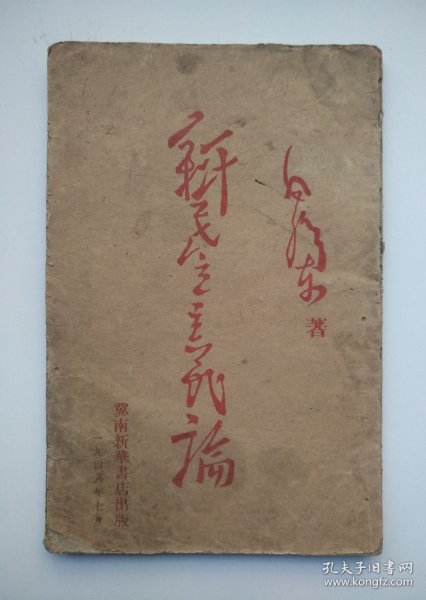 毛澤东
著
新民主主義論
冀南新華書店出版
一九四八年七月
孔夫子旧书网
www.kongfz.com